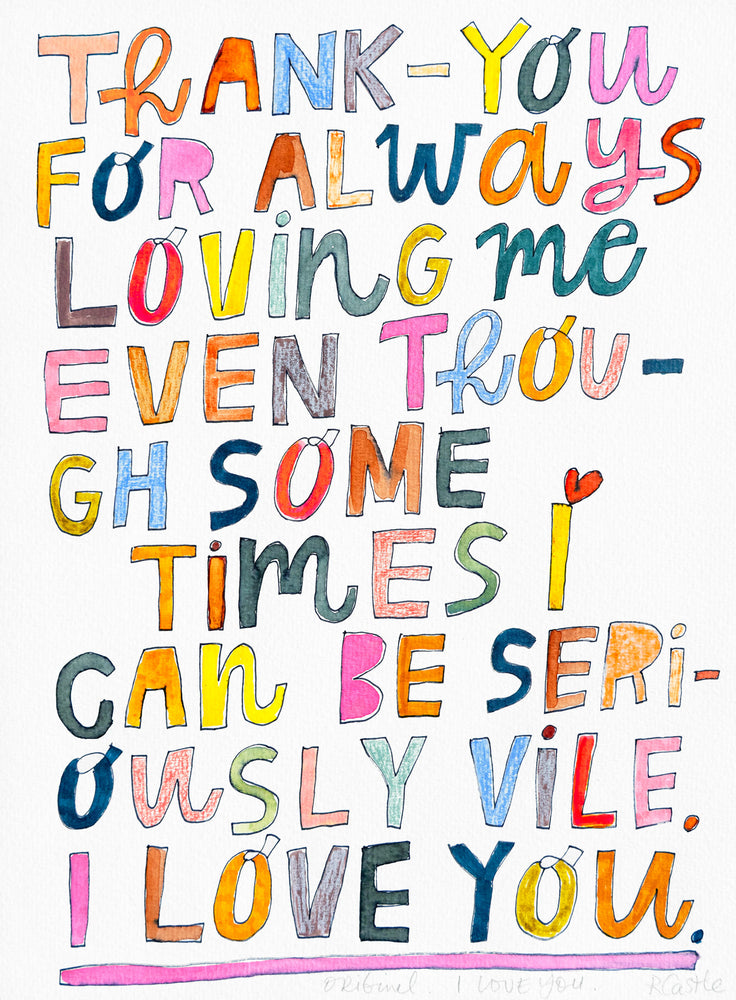 THANK-YOU
FOR ALways
LOViNG me
EVEN THOU-
GH SOME
TiMES I
CAN BE SERi-
OUSLY ViLE.
I LOVE YOU.
ORIGINAL. I LOVE YOU. RCastle